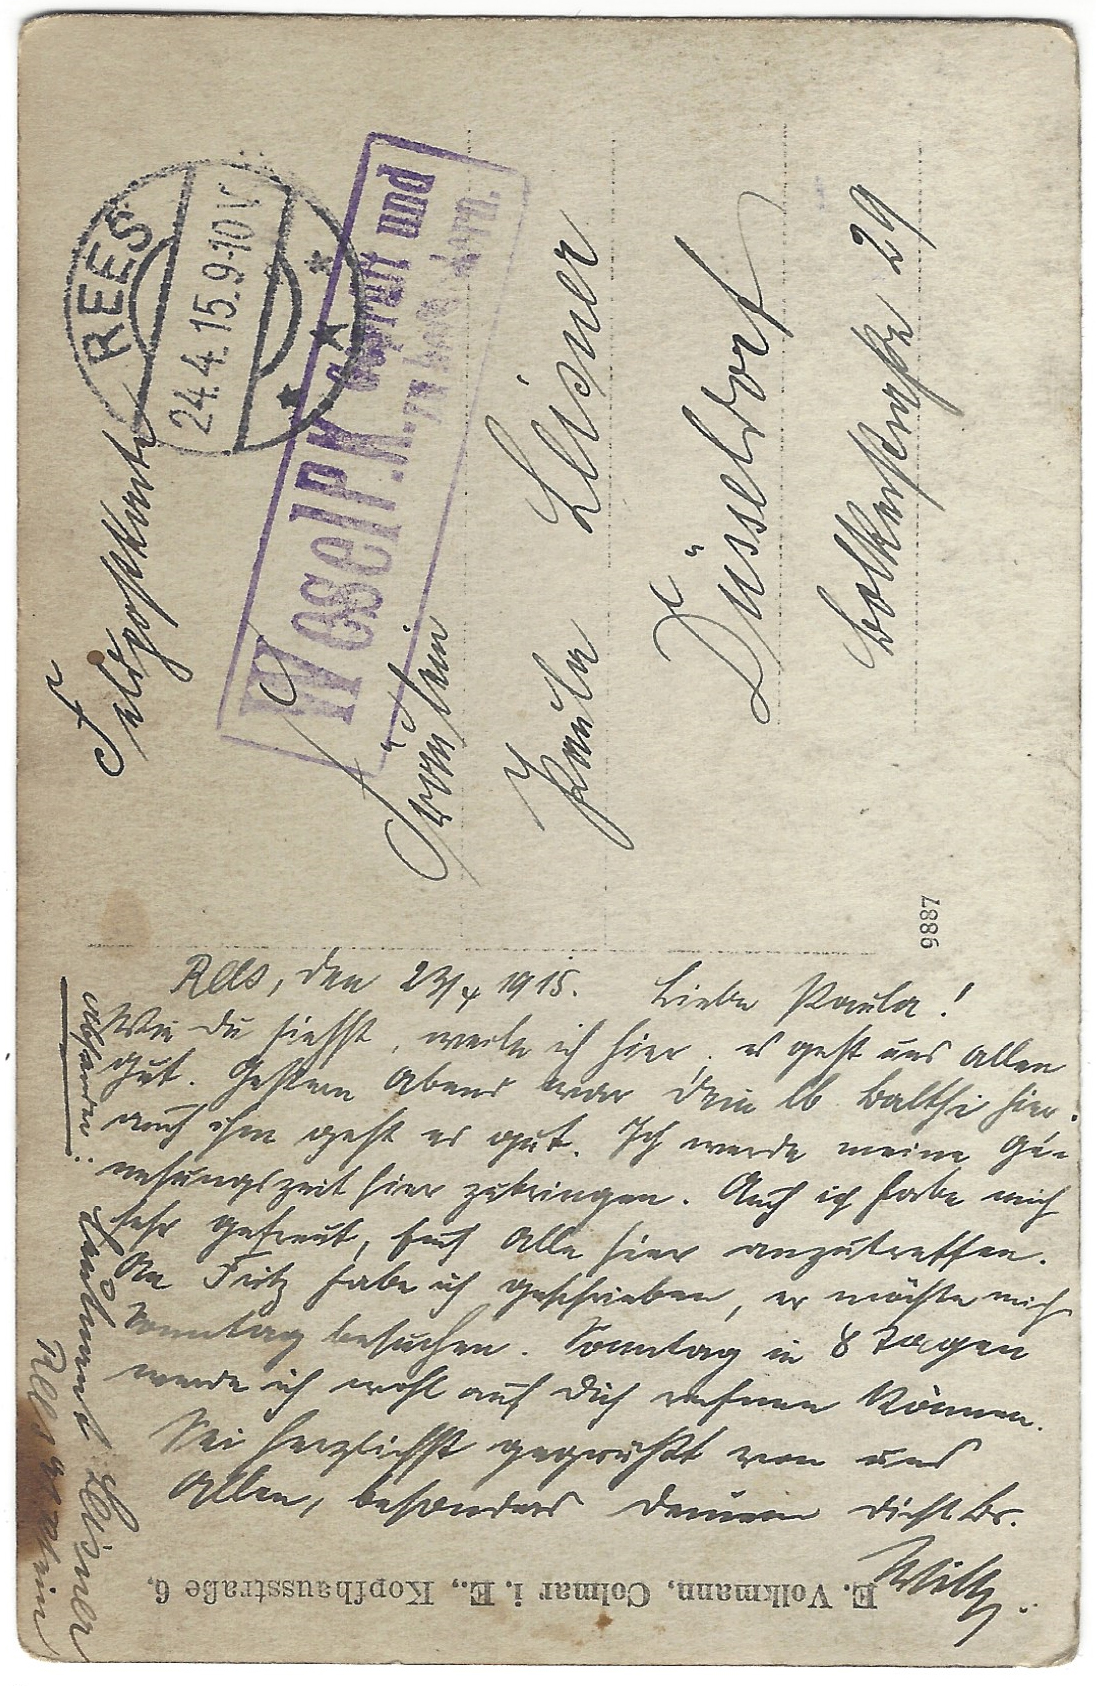 Feldpostkarte
REES
24.4.15.9-10V
Wesel P.K. geprüft und
zu befördern.
Fräulein
Paula Leisner
Düsseldorf
Bolkerstraße 29
9887
Rees, den 23/4 1915. Liebe Paula!
Wie Du siehst, weile ich hier, es geht uns allen
gut. Gestern Abend war Dein lb. Balthi hier.
auch ihm geht es gut. Ich werde meine Ge-
nesungszeit hier zubringen. Auch ich habe mich
sehr gefreut, Euch Alle hier anzutreffen.
An Fritz habe ich geschrieben, er möchte mich
Sonntag besuchen. Sonntag in 8 Tagen
werde ich wohl auf Dich rechnen können.
Sei herzlichst gegrüßt von uns
Allen, besonders Deinem Br.
Willy.
Absender: Leutnant Leisner
Rees a. Rhein
E. Volkmann, Colmar i. E., Kopfhausstraße 6,